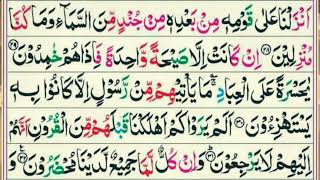 اَنْزَلْنَا عَلٰى قَوْمِهٖ مِنْۢ بَعْدِهٖ مِنْ جُنْدٍ مِّنَ السَّمَآءِ وَمَا كُنَّا
مُنْزِلِيْنَ ۝٢٨ اِنْ كَانَتْ اِلَّا صَيْحَةً وَّاحِدَةً فَاِذَا هُمْ خٰمِدُوْنَ ۝٢٩
يٰحَسْرَةً عَلَى الْعِبَادِ مَا يَاْتِيْهِمْ مِّنْ رَّسُوْلٍ اِلَّا كَانُوْا بِهٖ
يَسْتَهْزِءُوْنَ ۝٣٠ اَلَمْ يَرَوْا كَمْ اَهْلَكْنَا قَبْلَهُمْ مِّنَ الْقُرُوْنِ اَنَّهُمْ
اِلَيْهِمْ لَا يَرْجِعُوْنَ ۝٣١ وَاِنْ كُلٌّ لَّمَّا جَمِيْعٌ لَّدَيْنَا مُحْضَرُوْنَ ۝٣٢